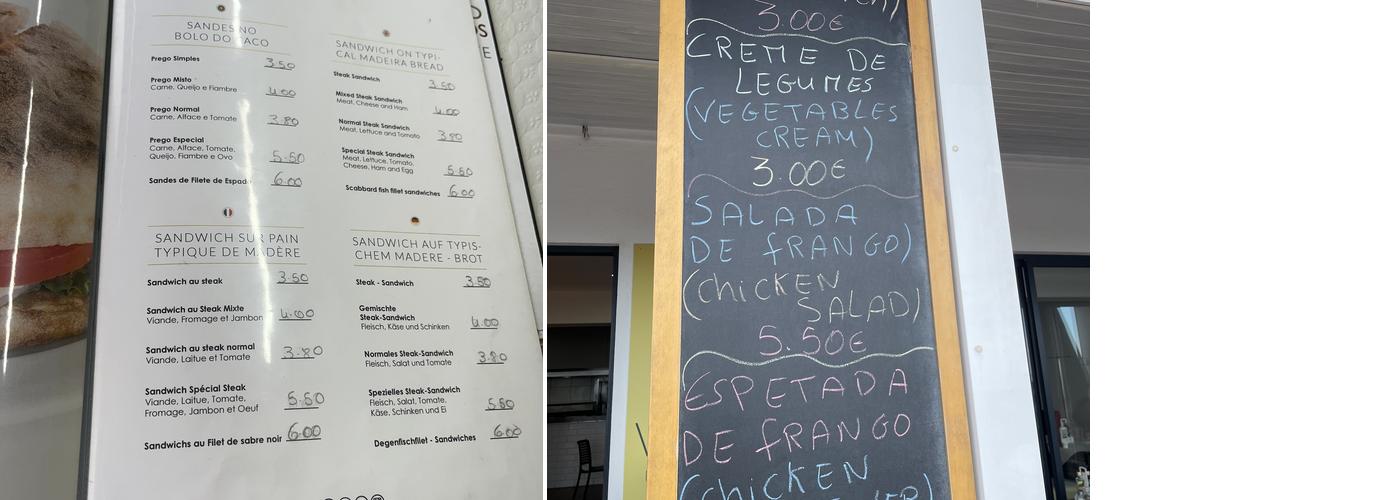 SANDES NO
BOLO DO CACO
Prego Simples 3.50
Prego Misto
Carne, Queijo e Fiambre 4.00
Prego Normal
Carne, Alface e Tomate 3.80
Prego Especial
Carne, Alface, Tomate,
Queijo, Fiambre e Ovo 5.50
Sandes de Filete de 6.00
SANDWICH ON TYPI-
CAL MADEIRA BREAD
Steak Sandwich 3.50
Mixed Steak Sandwich
Meat, Cheese and Ham 4.00
Normal Steak Sandwich
Meat, Lettuce and Tomato 3.80
Special Steak Sandwich
Meat, Lettuce, Tomato,
Cheese, Ham and Egg 5.50
Scabbard fish fillet sandwiches 6.00
SANDWICH SUR PAIN
TYPIQUE DE MADÈRE
Sandwich au steak 3.50
Sandwich au Steak Mixte
Viande, Fromage et Jambon 4.00
Sandwich au steak normal
Viande, Laitue et Tomate 3.80
Sandwich Spécial Steak
Viande, Laitue, Tomate,
Fromage, Jambon et Oeuf 5.50
Sandwichs au Filet de sabre noir 6.00
SANDWICH AUF TYPIS-
CHEM MADERE - BROT
Steak - Sandwich 3.50
Gemischte
Steak-Sandwich
Fleisch, Käse und Schinken 4.00
Normales Steak-Sandwich
Fleisch, Salat und Tomate 3.80
Spezielles Steak-Sandwich
Fleisch, Salat, Tomate,
Käse, Schinken und Ei 5.50
Degenfischfilet - Sandwiches 6.00
3.00€
CREME DE
LEGUMES
(VEGETABLES
CREAM)
3.00€
SALADA
DE FRANGO)
(CHICKEN
SALAD)
5.50€
ESPETADA
DE FRANGO
(CHICKEN